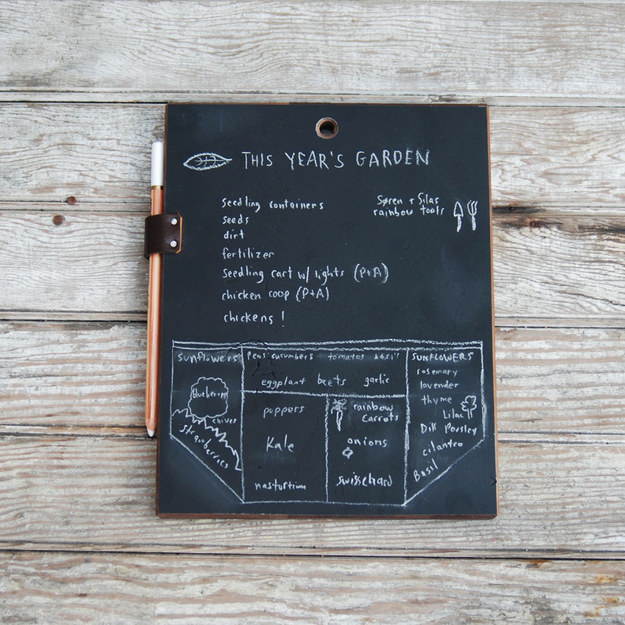 THIS YEAR'S GARDEN
seedling containers
seeds
dirt
fertilizer
seedling cart w/ lights (P+A)
chicken coop (P+A)
chickens!
Søren + Silas
rainbow tools
SUNFLOWERS
Blueberries
chives
strawberries
Peas cucumbers tomatos basil
eggplant beets garlic
peppers
Kale
nasturtium
rainbow
carrots
onions
swisschard
SUNFLOWERS
rosemary
lavender
thyme
Lilac
Dill Parsley
cilantro
Basil